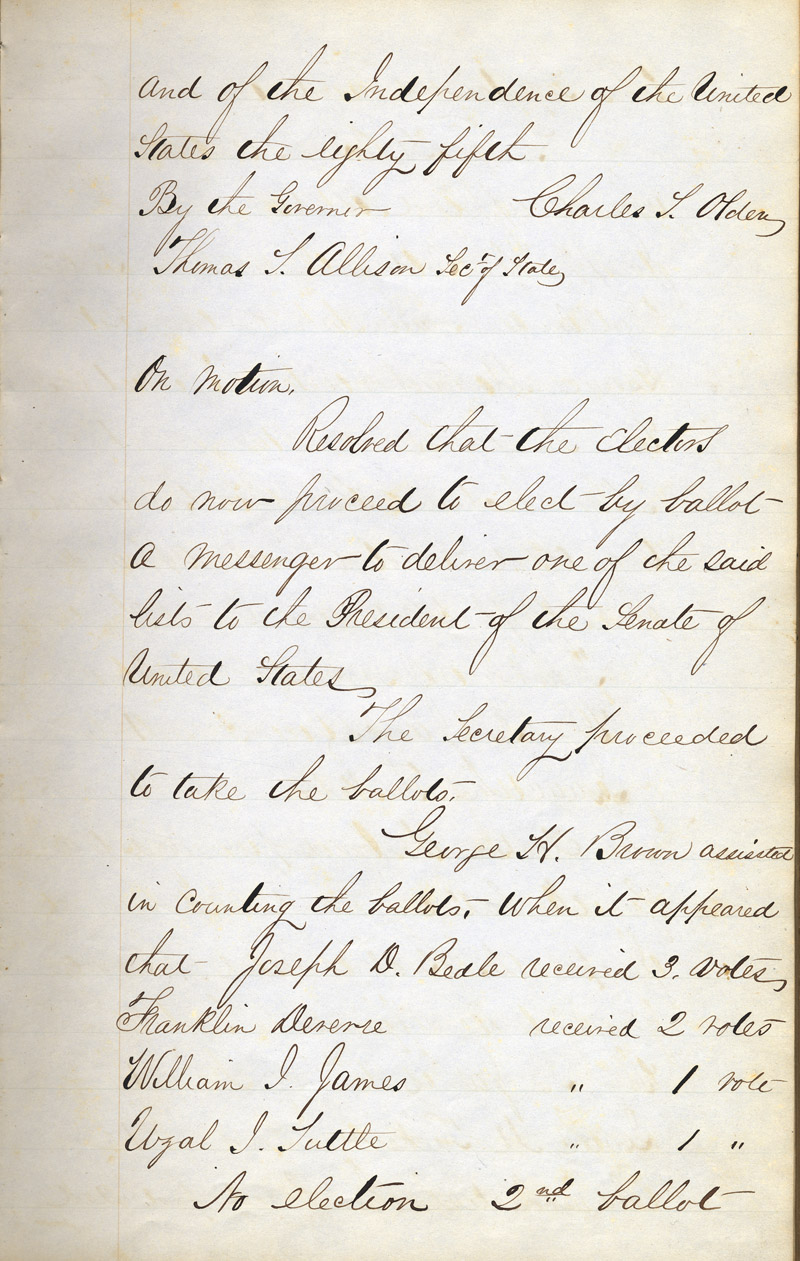 and of the Independence of the United
States the eighty fifth
By the Governor Charles S. Olden
Thomas S. Allison Secy of State
On motion,
Resolved that the electors
do now proceed to elect by ballot
a messenger to deliver one of the said
lists to the President of the Senate of
United States
The Secretary proceeded
to take the ballots.
George H. Brown assisted
in counting the ballots, when it appeared
that Joseph D. Bedle received 3. votes,
Franklin received 2 votes
William I. James " 1 vote
Uzal I. Tuttle " 1 "
No election 2nd ballot